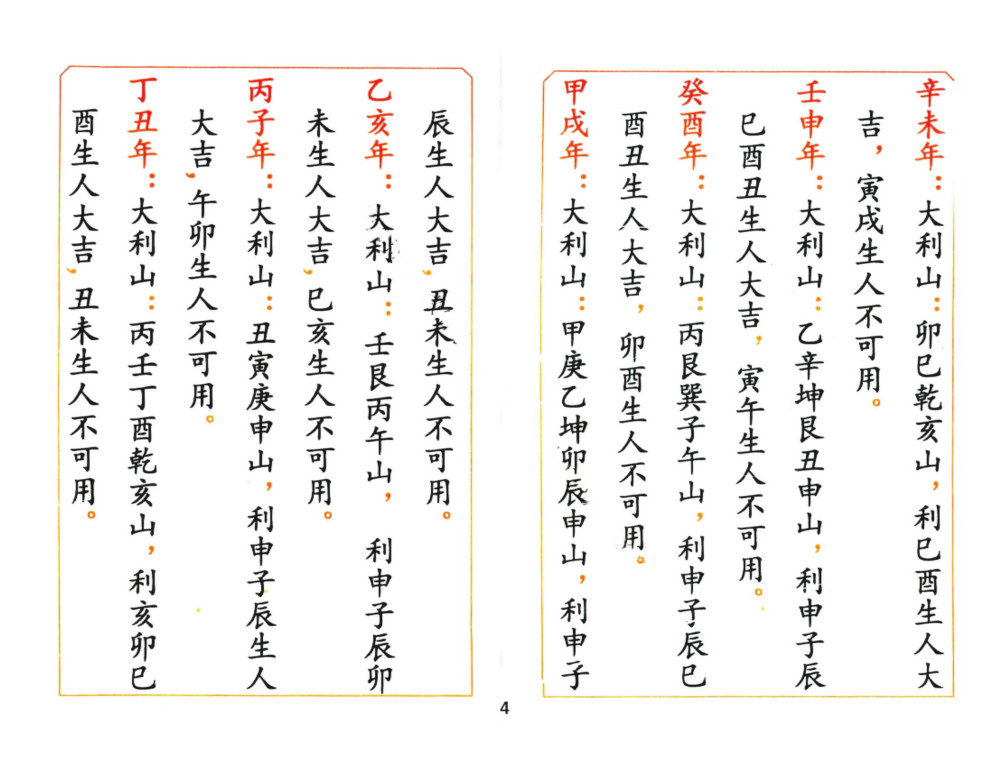 辛未年：大利山：卯巳乾亥山，利巳酉生人大
吉，寅戌生人不可用。
壬申年：大利山：乙辛坤艮丑申山，利申子辰
巳酉丑生人大吉，寅午生人不可用。
癸酉年：大利山：丙艮巽子午山，利申子辰巳
酉丑生人大吉，卯酉生人不可用。
甲戌年：大利山：甲庚乙坤卯辰申山，利申子
辰生人大吉，丑未生人不可用。
乙亥年：大利山：壬艮丙午山，利申子辰卯
未生人大吉，巳亥生人不可用。
丙子年：大利山：丑寅庚申山，利申子辰生人
大吉，午卯生人不可用。
丁丑年：大利山：丙壬丁酉乾亥山，利亥卯巳
酉生人大吉，丑未生人不可用。
4